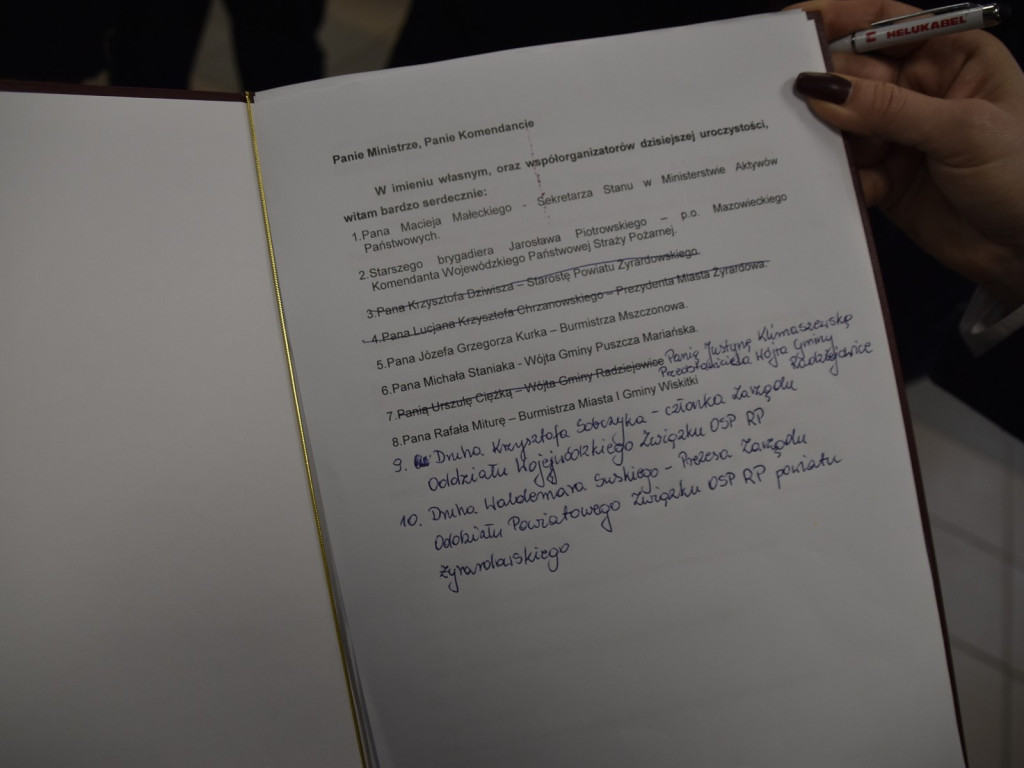 HELUKABEL
Panie Ministrze, Panie Komendancie
W imieniu własnym, oraz współorganizatorów dzisiejszej uroczystości,
witam bardzo serdecznie:
1.Pana Macieja Małeckiego - Sekretarza Stanu w Ministerstwie Aktywów
Państwowych.
2.Starszego brygadiera Jarosława Piotrowskiego – p.o. Mazowieckiego
Komendanta Wojewódzkiego Państwowej Straży Pożarnej.
3.Pana Krzysztofa Dziwisza – Starostę Powiatu Żyrardowskiego
4.Pana Lucjana Krzysztofa Chrzanowskiego – Prezydenta Miasta Żyrardowa.
5.Pana Józefa Grzegorza Kurka – Burmistrza Mszczonowa.
6.Pana Michała Staniaka - Wójta Gminy Puszcza Mariańska.
7.Panią Urszulę Ciężką – Wójta Gminy Radziejowice Panią Justynę Klimaszewską
Przedstawiciela Wójta Gminy
Radziejowice
8.Pana Rafała Miturę – Burmistrza Miasta I Gminy Wiskitki
9. Druha Krzysztofa Sobczyka - członka Zarządu
Oddziału Wojewódzkiego Związku OSP RP
10. Druha Waldemara Suskiego - Prezesa Zarządu
Oddziału Powiatowego Związku OSP RP powiatu
żyrardowskiego